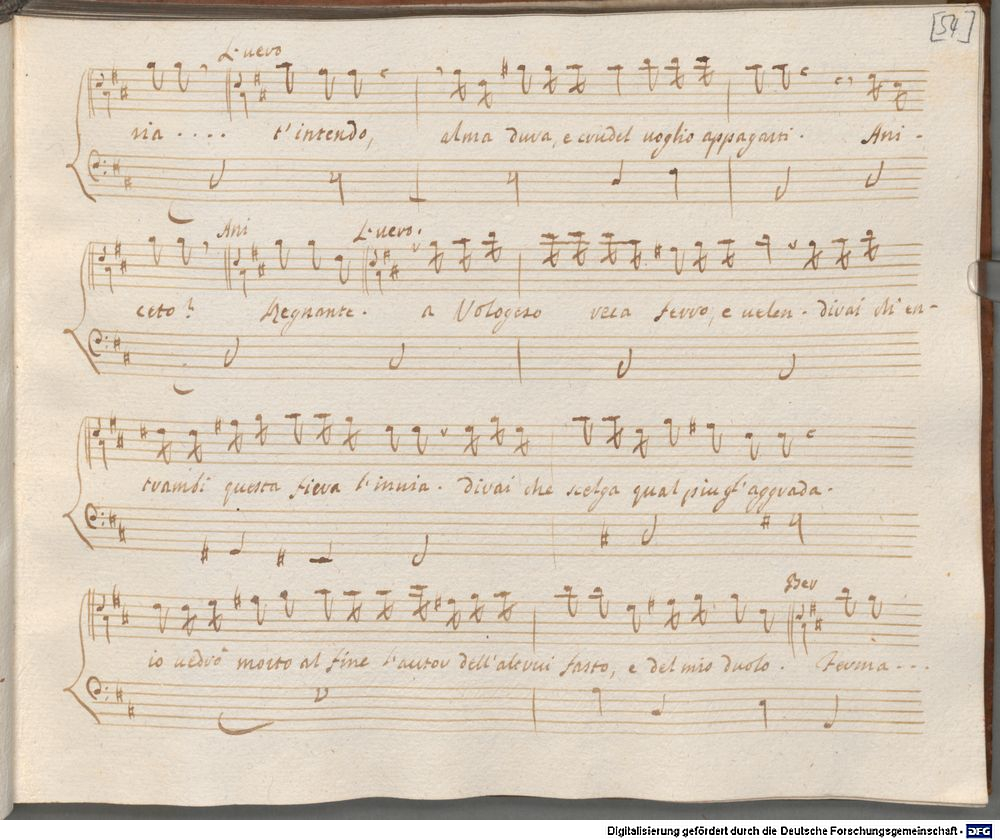 [54]
L. vero
ria .... t'intendo, alma dura, e crudel voglio appagarti. Ani-
Ani L. vero.
ceto? Regnante. a Vologeso reca ferro, e velen. dirai ch'en-
trambi questa fiera l'invia. dirai che scelga qual piu gl'aggrada.
Ber
io vedrò morto al fine l'autor dell'altrui fasto, e del mio duolo. Ferma ...
Digitalisierung gefördert durch die Deutsche Forschungsgemeinschaft - DFG